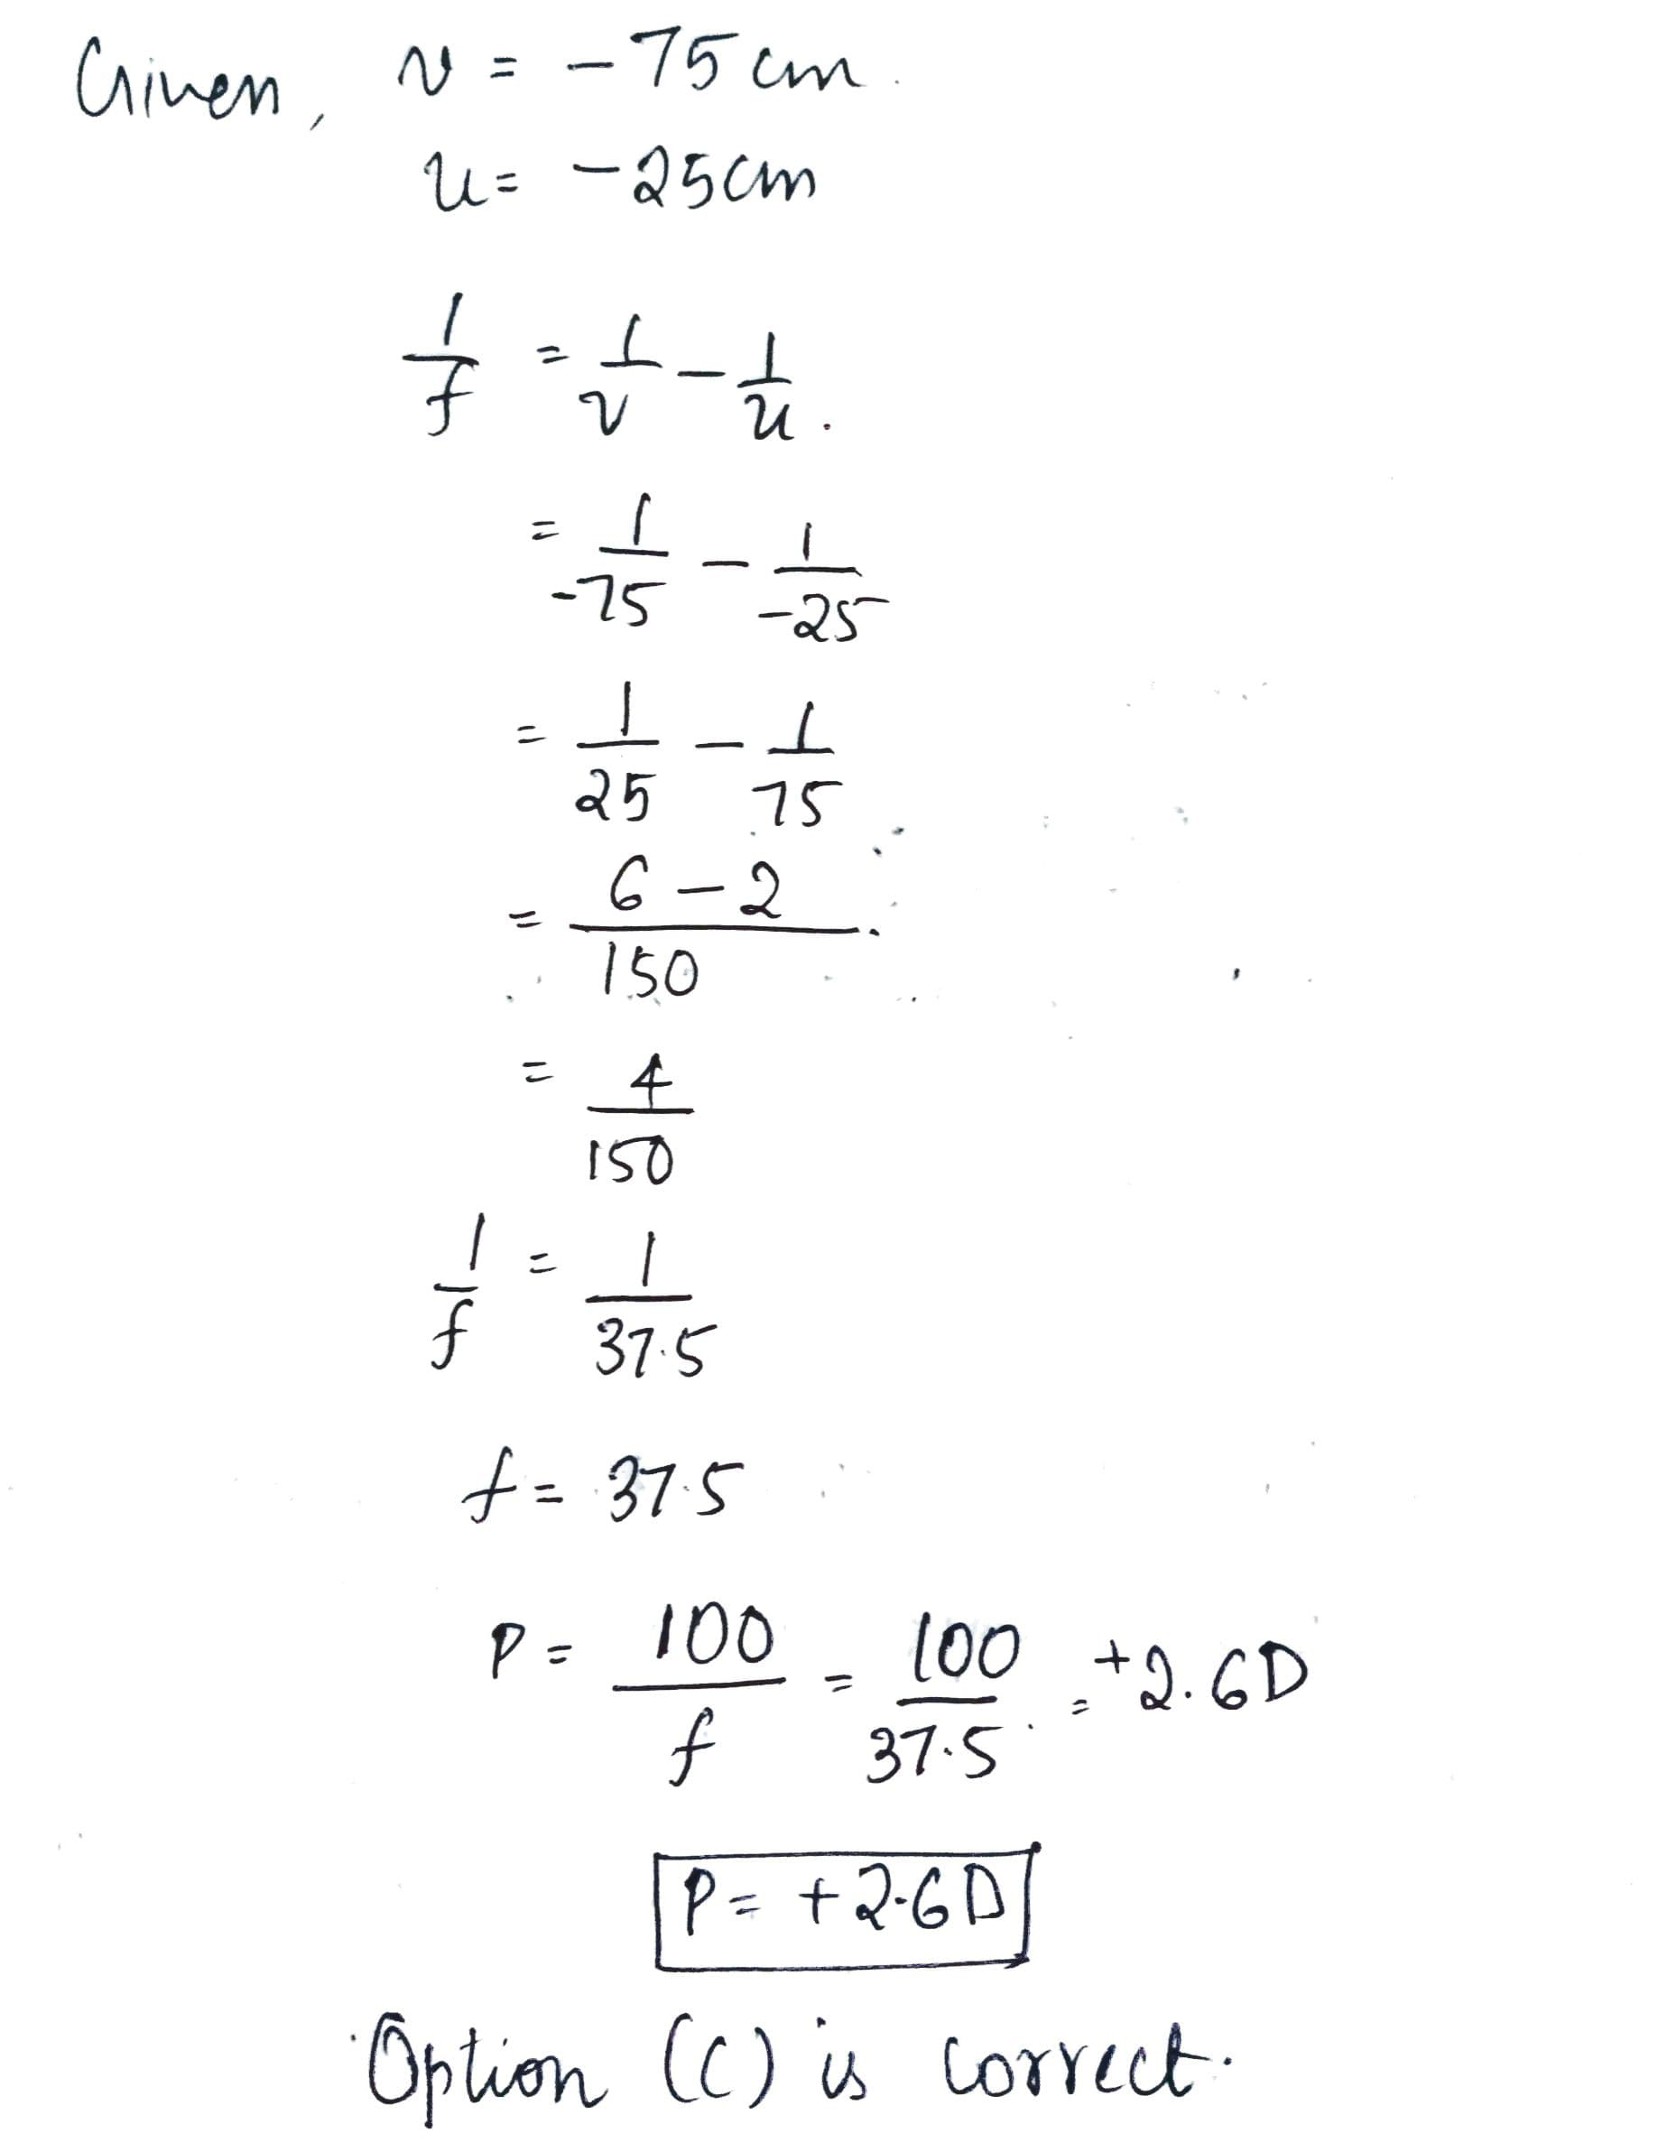 Given, v = -75 cm.
u = -25 cm
1/f = 1/v - 1/u.
= 1/-75 - 1/-25
= 1/25 - 1/75
= 6-2/150
= 4/150
1/f = 1/37.5
f = 37.5
P = 100/f = 100/37.5 = +2.6D
P = +2.6D
Option (C) is correct.